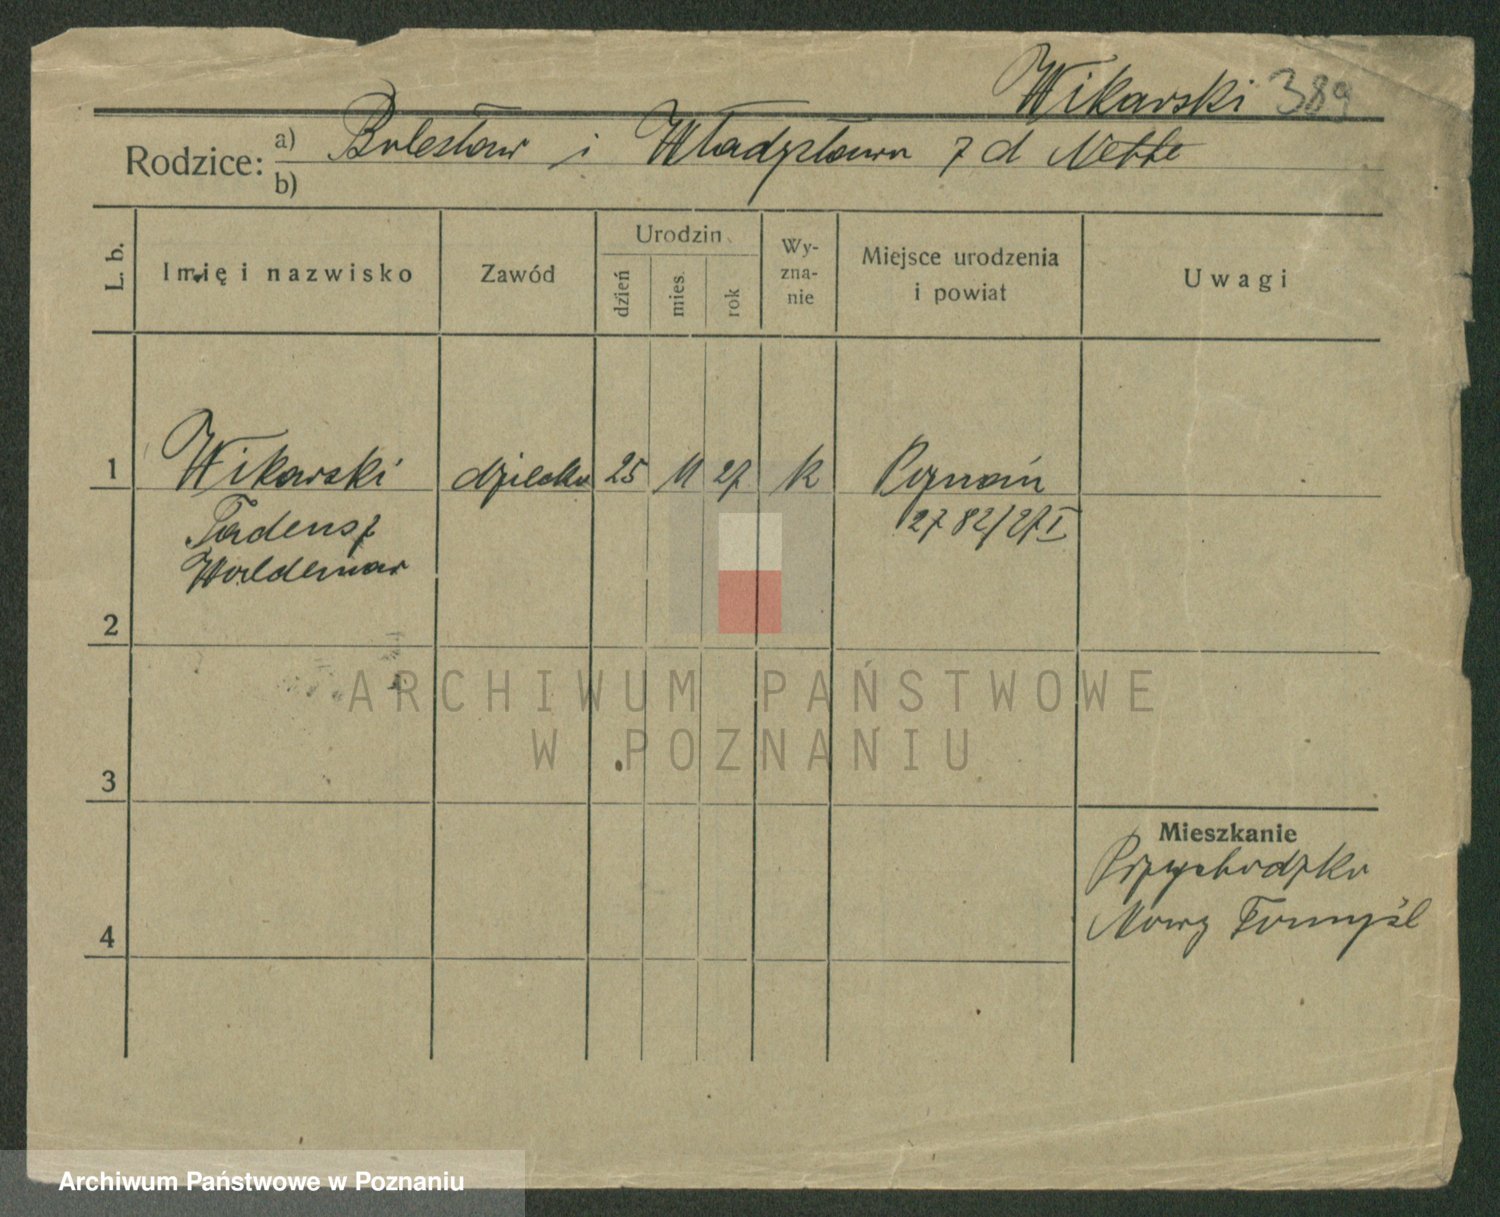 Wikarski 389
Rodzice: a) Bolesław i Władysława z d Nehte
b)
L. b. Imię i nazwisko Zawód Urodzin dzień mies. rok Wy-zna-nie Miejsce urodzenia i powiat Uwagi
1 Wikarski dziecko 25 11 27 k Poznań
Tadeusz 2782/27 I
Woldemar
2
ARCHIWUM PAŃSTWOWE
W POZNANIU
3
Mieszkanie
Przychodzko
4 Nowy Tomyśl
Archiwum Państwowe w Poznaniu